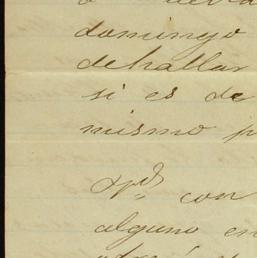 domingo
de hallar
si es de
mismo p
con
alguno en